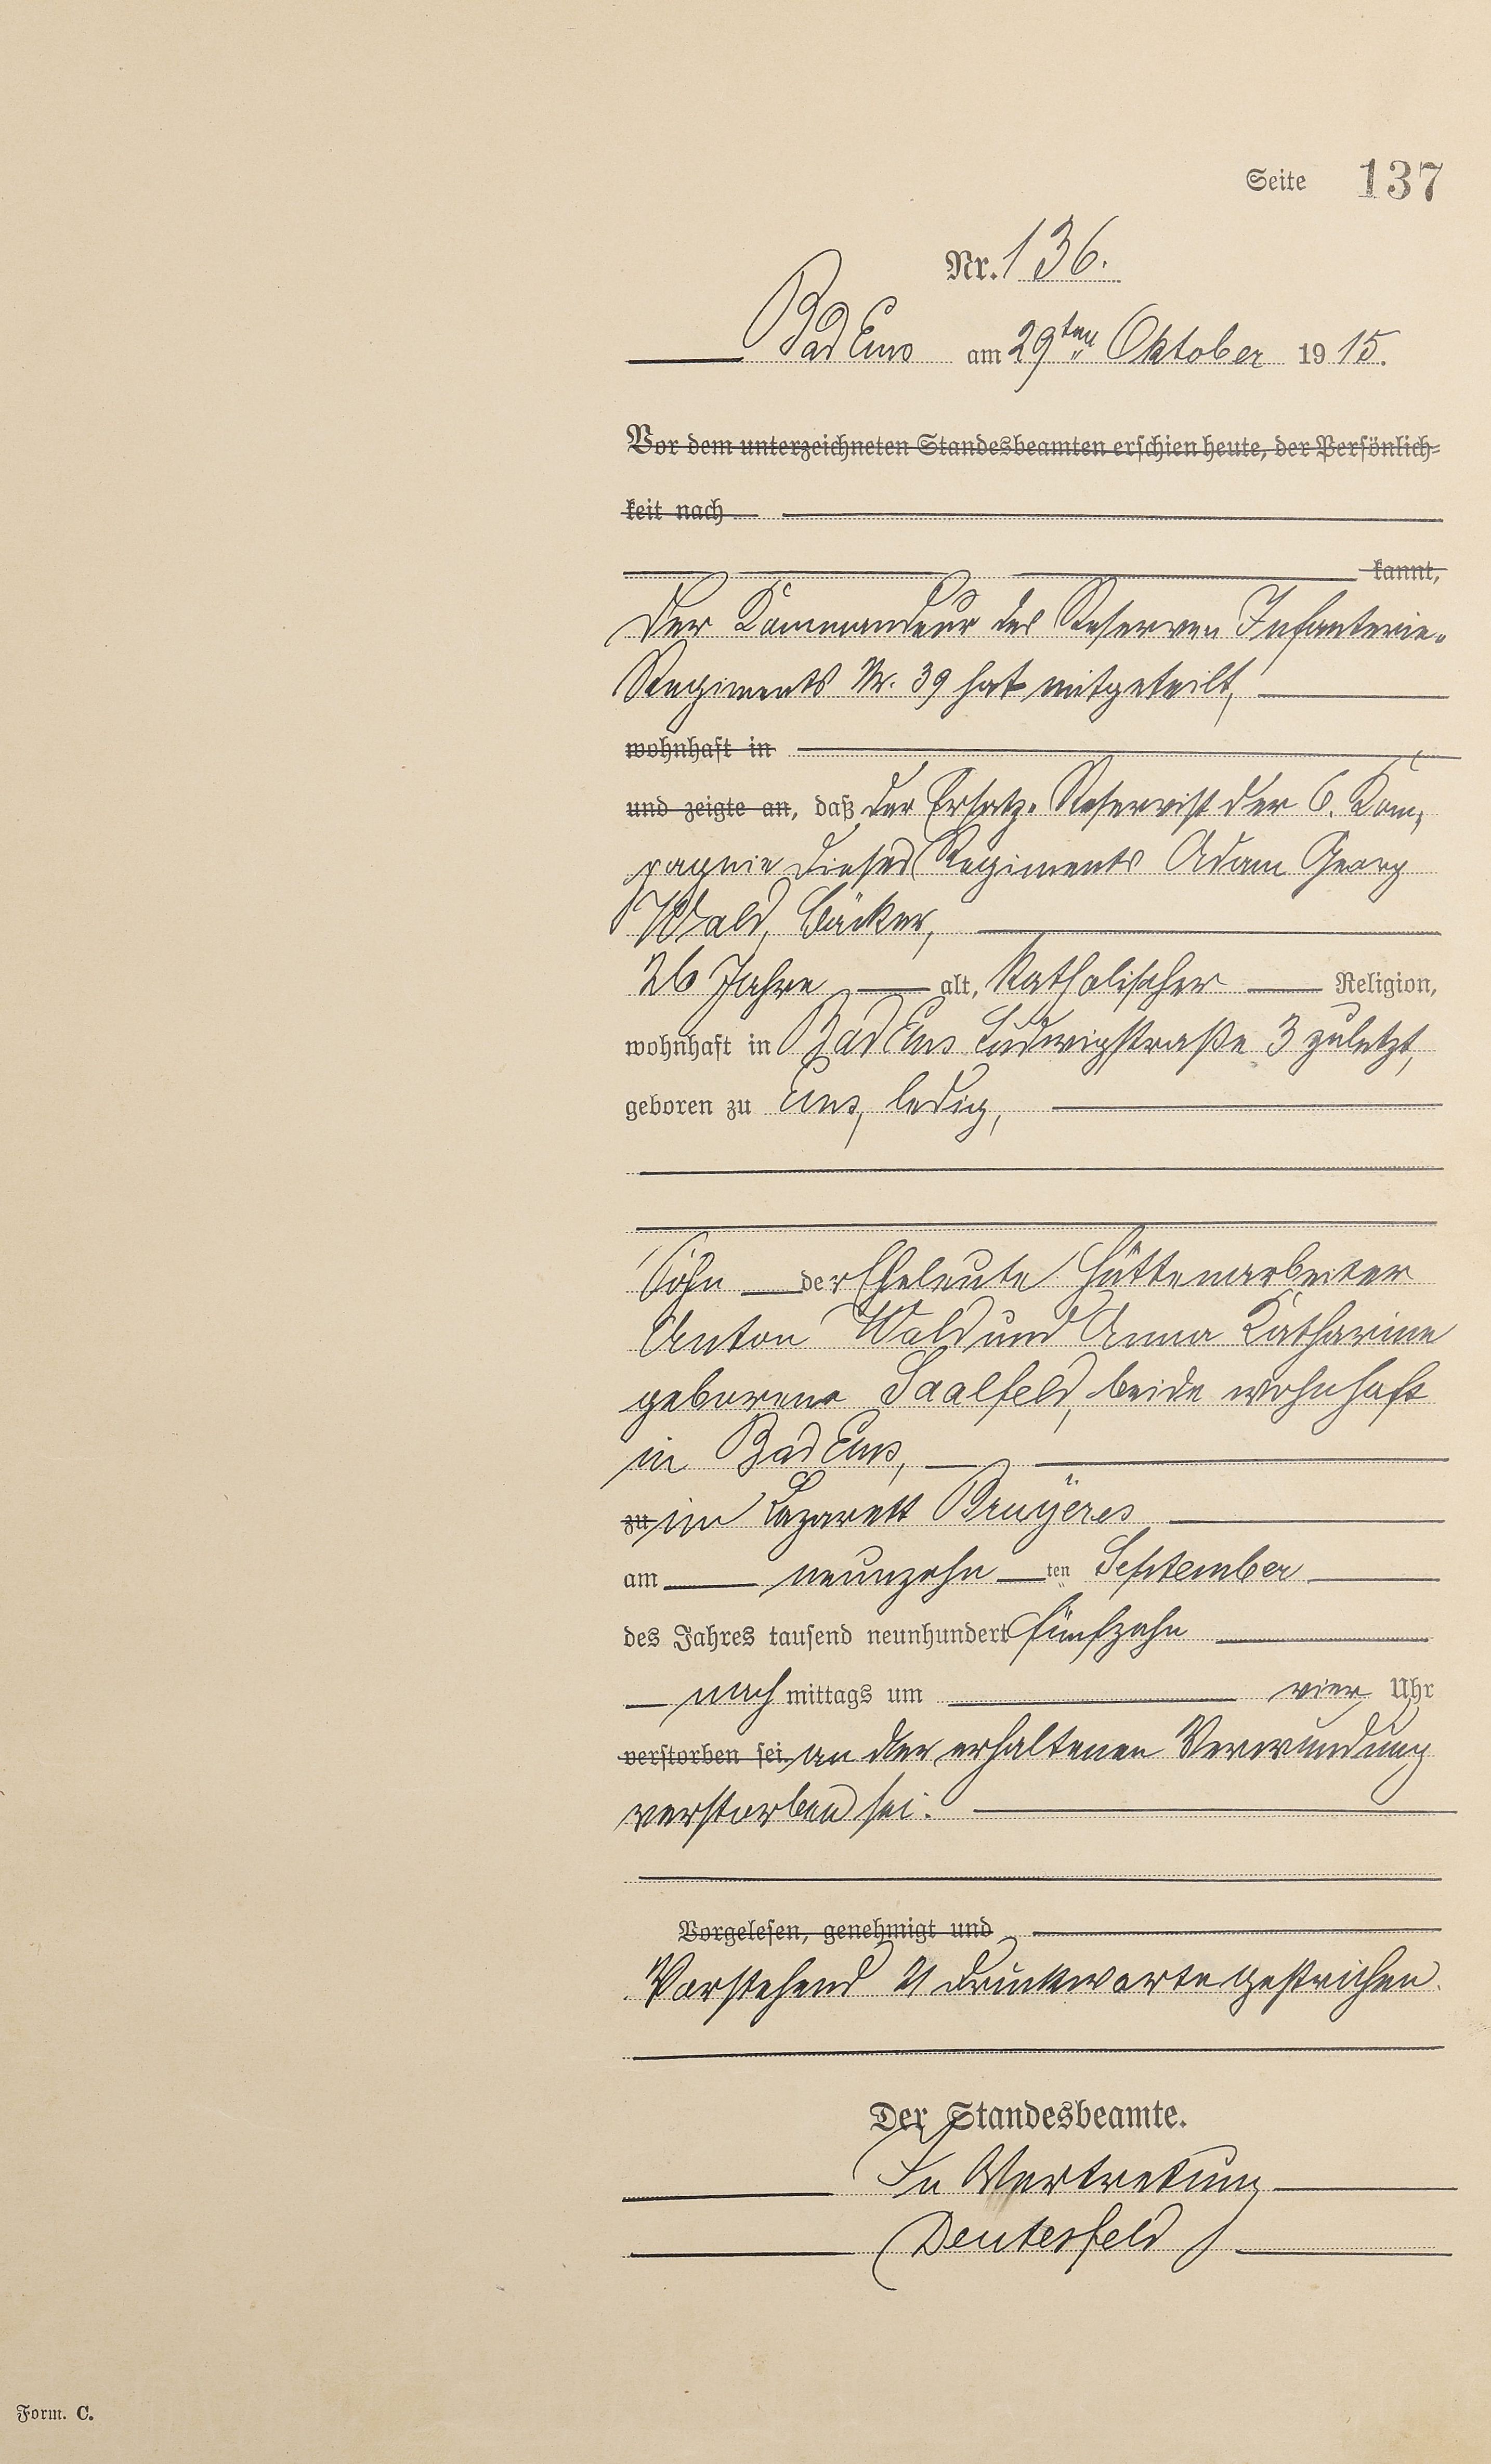 Seite 137
Nr. 136.
Bad Ems am 29ten Oktober 1915.
Vor dem unterzeichneten Standesbeamten erschien heute, der Persönlich-
keit nach
kannt,
Der Kommandeur des Reserven Infanterie-
Regiments Nr. 39 hat mitgeteilt,
wohnhaft in
und zeigte an, daß der Ersatz-Reservist der 6. Kom-
pagnie dieses Regiments Adam Georg
Wald, Bäcker,
26 Jahre alt, katholischer Religion,
wohnhaft in Bad Ems Ludwigstraße 3 zuletzt,
geboren zu Ems, ledig,
Sohn der Eheleute Hüttenarbeiter
Anton Wald und Anna Katharine
geborene Saalfeld, beide wohnhaft
in Bad Ems,
zu im Lazarett Bruÿères
am neunzehn ten September
des Jahres tausend neunhundert fünfzehn
nach mittags um vier Uhr
verstorben sei. an der erhaltenen Verwundung
verstorben sei.
Vorgelesen, genehmigt und
Vorstehend 21 Druckworte gestrichen.
Der Standesbeamte.
In Vertretung
Deutesfeld
Form. C.